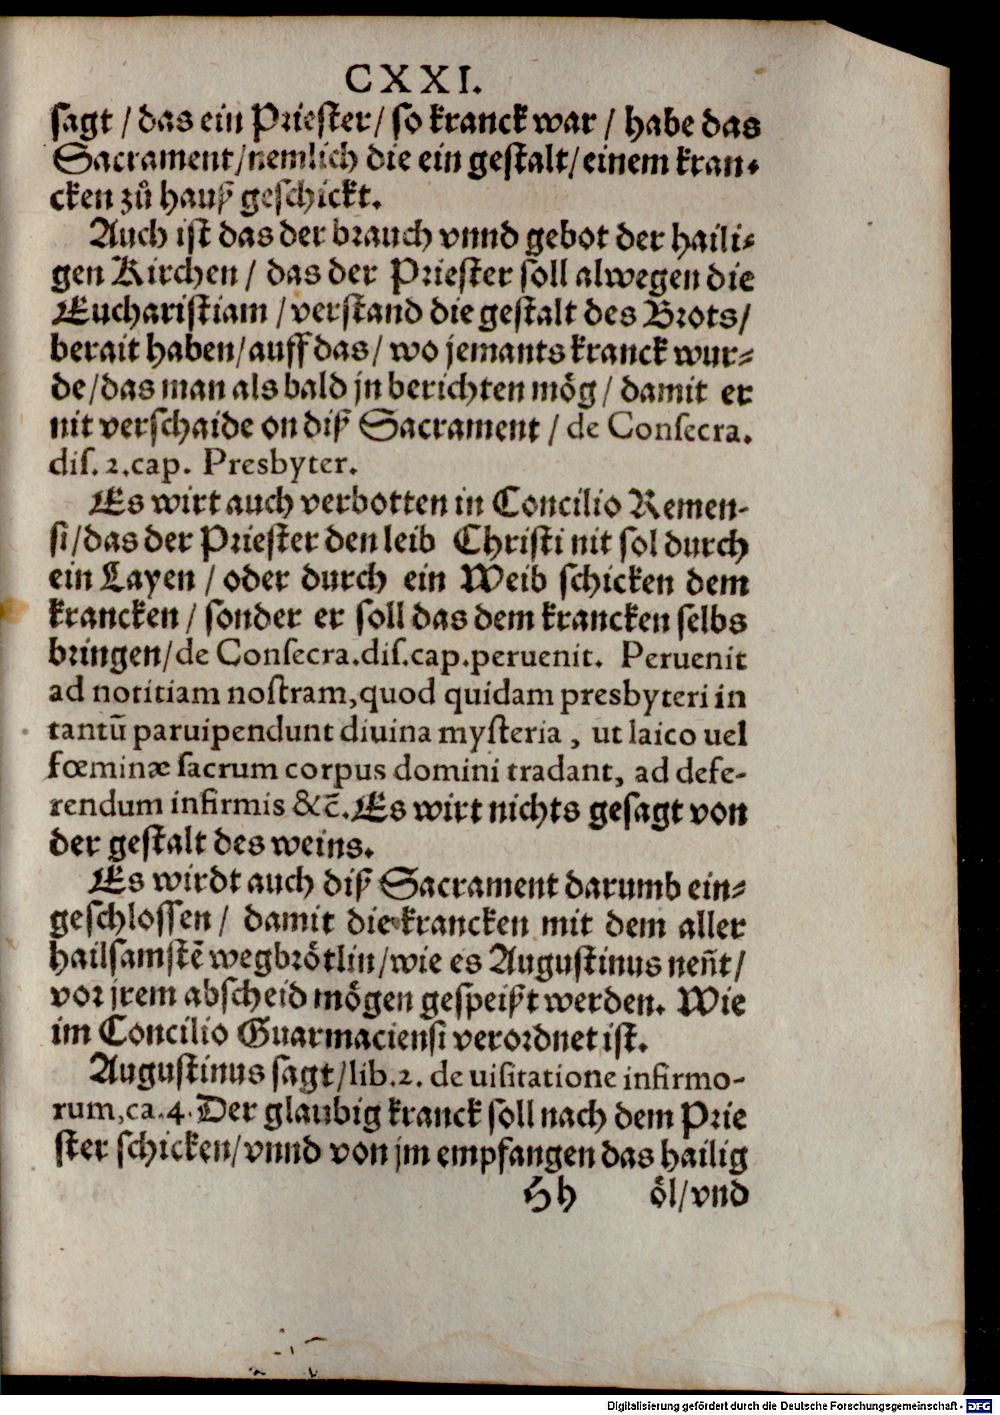 CXXI.
sagt / das ein Priester / so kranck war / habe das
Sacrament / nemlich die ein gestalt / einem kran-
cken zů hauß geschickt.
Auch ist das der brauch vnnd gebot der haili-
gen Kirchen / das der Priester soll alwegen die
Eucharistiam / verstand die gestalt des Brots /
berait haben / auff das / wo jemants kranck wur-
de / das man als bald jn berichten mög / damit er
nit verschaide on diß Sacrament / de Consecra.
dis. 2. cap. Presbyter.
Es wirt auch verbotten in Concilio Remen-
si / das der Priester den leib Christi nit sol durch
ein Layen / oder durch ein Weib schicken dem
krancken / sonder er soll das dem krancken selbs
bringen / de Consecra. dis. cap. peruenit. Peruenit
ad notitiam nostram, quod quidam presbyteri in
tantũ paruipendunt diuina mysteria, ut laico uel
fœminæ sacrum corpus domini tradant, ad defe-
rendum infirmis &c̃. Es wirt nichts gesagt von
der gestalt des weins.
Es wirdt auch diß Sacrament darumb ein-
geschlossen / damit die krancken mit dem aller
hailsamstẽ wegbrötlin / wie es Augustinus neñt /
vor jrem abscheid mögen gespeißt werden. Wie
im Concilio Guarmaciensi verordnet ist.
Augustinus sagt / lib. 2. de uisitatione infirmo-
rum, ca. 4. Der glaubig kranck soll nach dem Prie
ster schicken / vnnd von jm empfangen das hailig
Hh öl / vnd
Digitalisierung gefördert durch die Deutsche Forschungsgemeinschaft - DFG